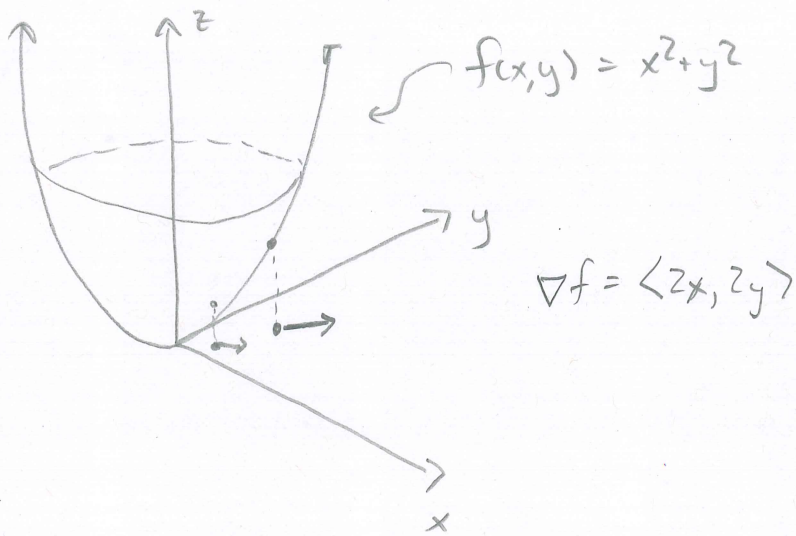 z
f(x,y) = x²+y²
y
∇f = ⟨2x, 2y⟩
x